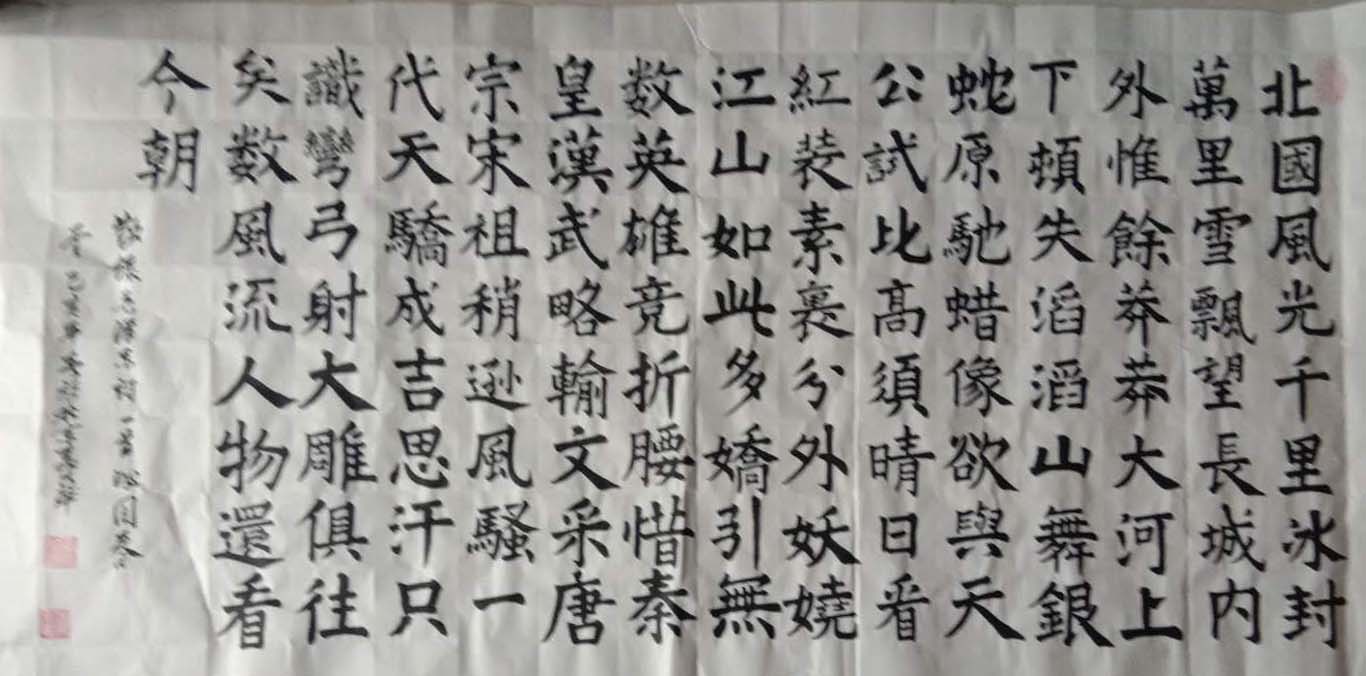 北國風光千里冰封
萬里雪飄望長城内
外惟餘莽莽大河上
下頓失滔滔山舞銀
蛇原馳蜡像欲與天
公試比高須晴日看
紅装素裹分外妖嬈
江山如此多嬌引無
数英雄竞折腰惜秦
皇漢武略輸文采唐
宗宋祖稍逊風騷一
代天驕成吉思汗只
識彎弓射大雕俱往
矣数風流人物還看
今朝
敬録毛澤东詞一首沁园春
雪 己亥年